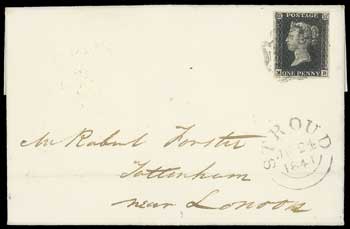 POSTAGE
ONE PENNY
Mr Robert Forster
Tottenham
near London
STROUD
24
1841